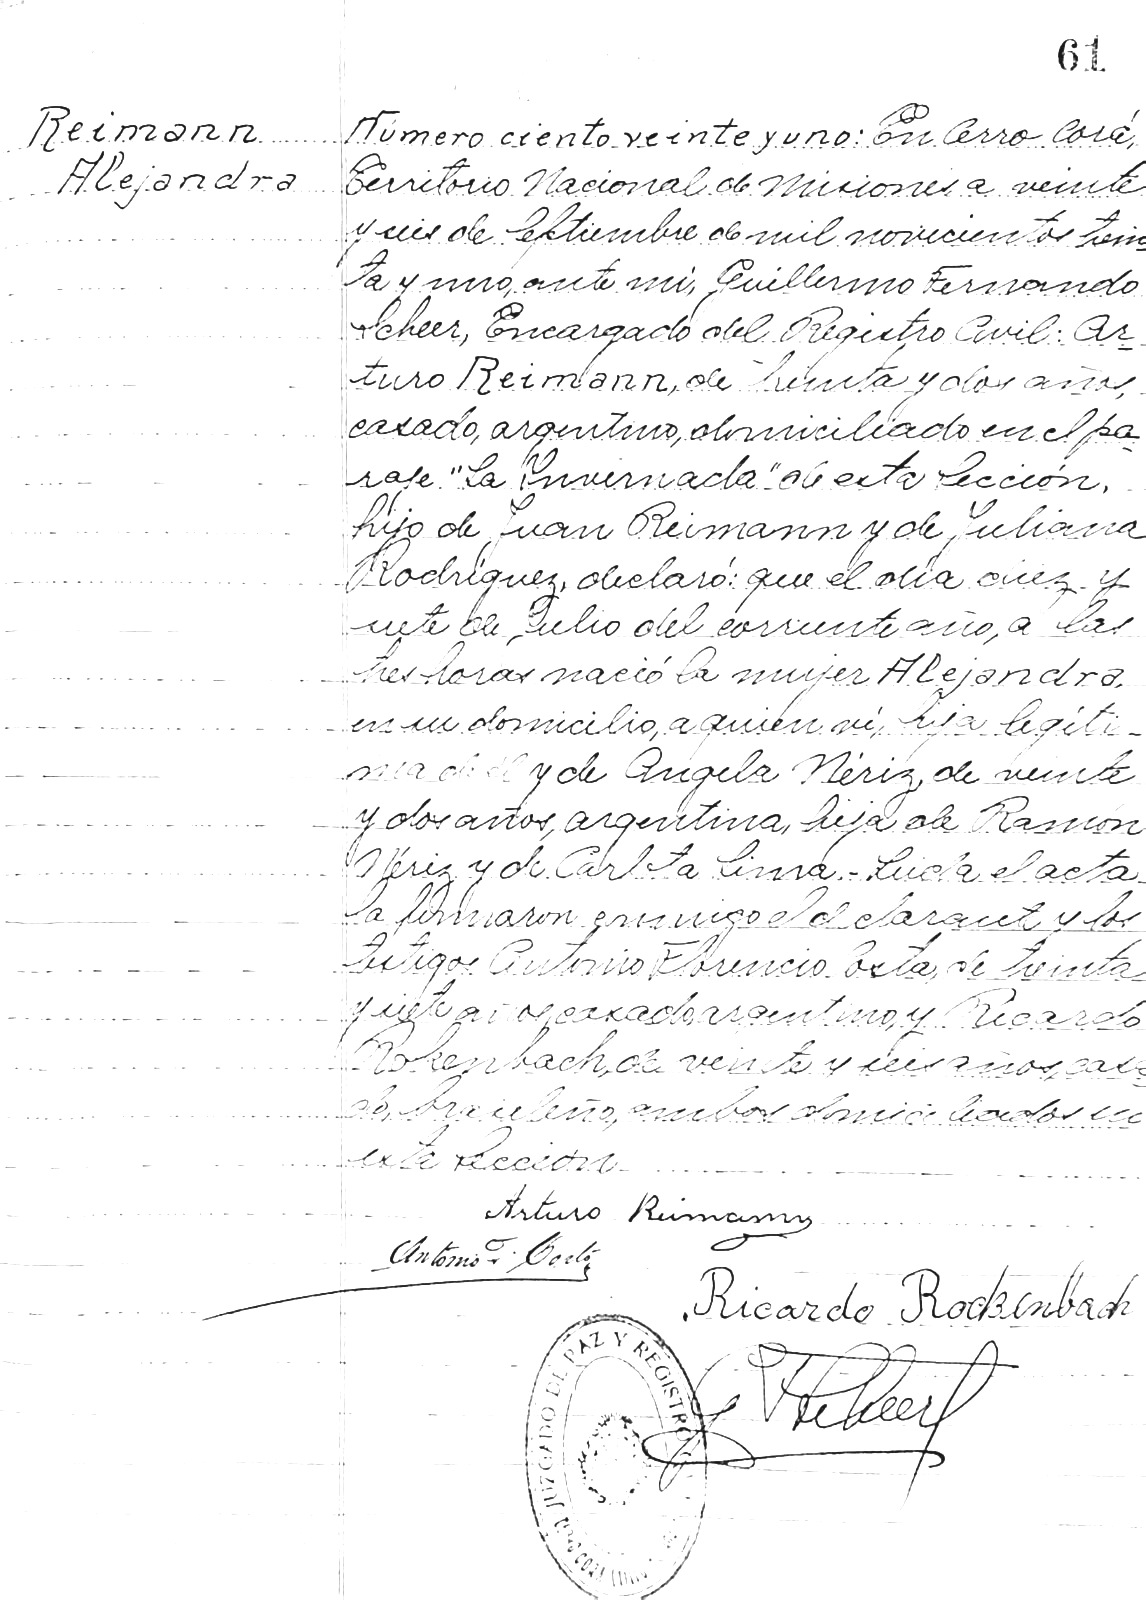 61
Reimann
Alejandra
Número ciento veinte y uno: En Cerro Corá,
Territorio Nacional de Misiones a veinte
y seis de Septiembre de mil novecientos trein
ta y uno, ante mi, Guillermo Fernando
Scheer, Encargado del Registro Civil: Ar-
turo Reimann, de treinta y dos años,
casado, argentino, domiciliado en el pa-
raje "La Invernada" de esta Sección,
hijo de Juan Reimann y de Juliana
Rodríguez, declaró: que el día diez y
siete de Julio del corriente año, a las
tres horas nació la mujer Alejandra,
en su domicilio, a quien ví, hija legíti-
ma de él y de Angela Nériz, de veinte
y dos años, argentina, hija de Ramón
Nériz y de Carlota Lima.- Leída el acta
la firmaron conmigo el declarante y los
testigos Antonio Florencio Costa, de treinta
y siete años, casado, argentino, y Ricardo
Rokenbach, de veinte y seis años, casa
do, brasileño, ambos domiciliados en
esta Sección
Arturo Reimann
Antonio F. Costa
Ricardo Rockenbach
G F Scheer
JUZGADO DE PAZ Y REGISTRO